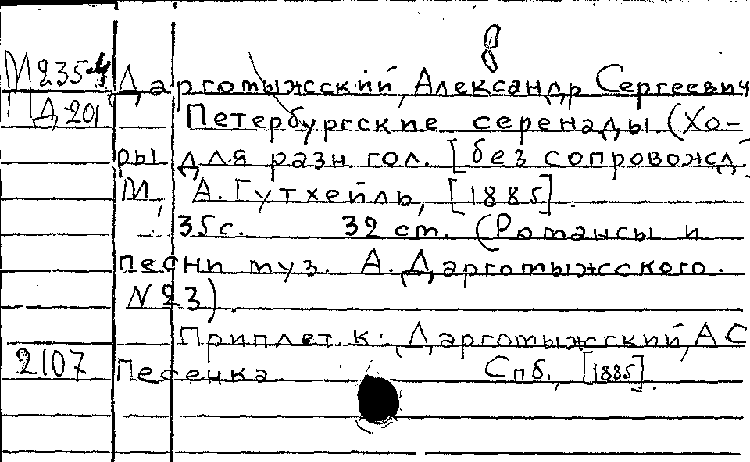 8
М235-4 Даргомыжский, Александр Сергеевич
Д 201 Петербургские серенады (Хо-
ры для разн гол. [без сопровожд.]
М, А. Гутхейль, [1885].
35с. 32 ст. (Романсы и
песни муз. А. Даргомыжского.
N 23).
Приплет. к: Даргомыжский, А С
2107 Песенка Спб., [1885].